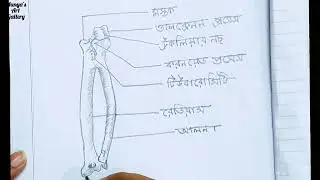 Sunga's
Art
Gallery
মস্তক
ওলেক্রেনন প্রসেস
ট্রকলিয়ার নচ
করনয়েড প্রসেস
টিউবারোসিটি
রেডিয়াস
আলনা